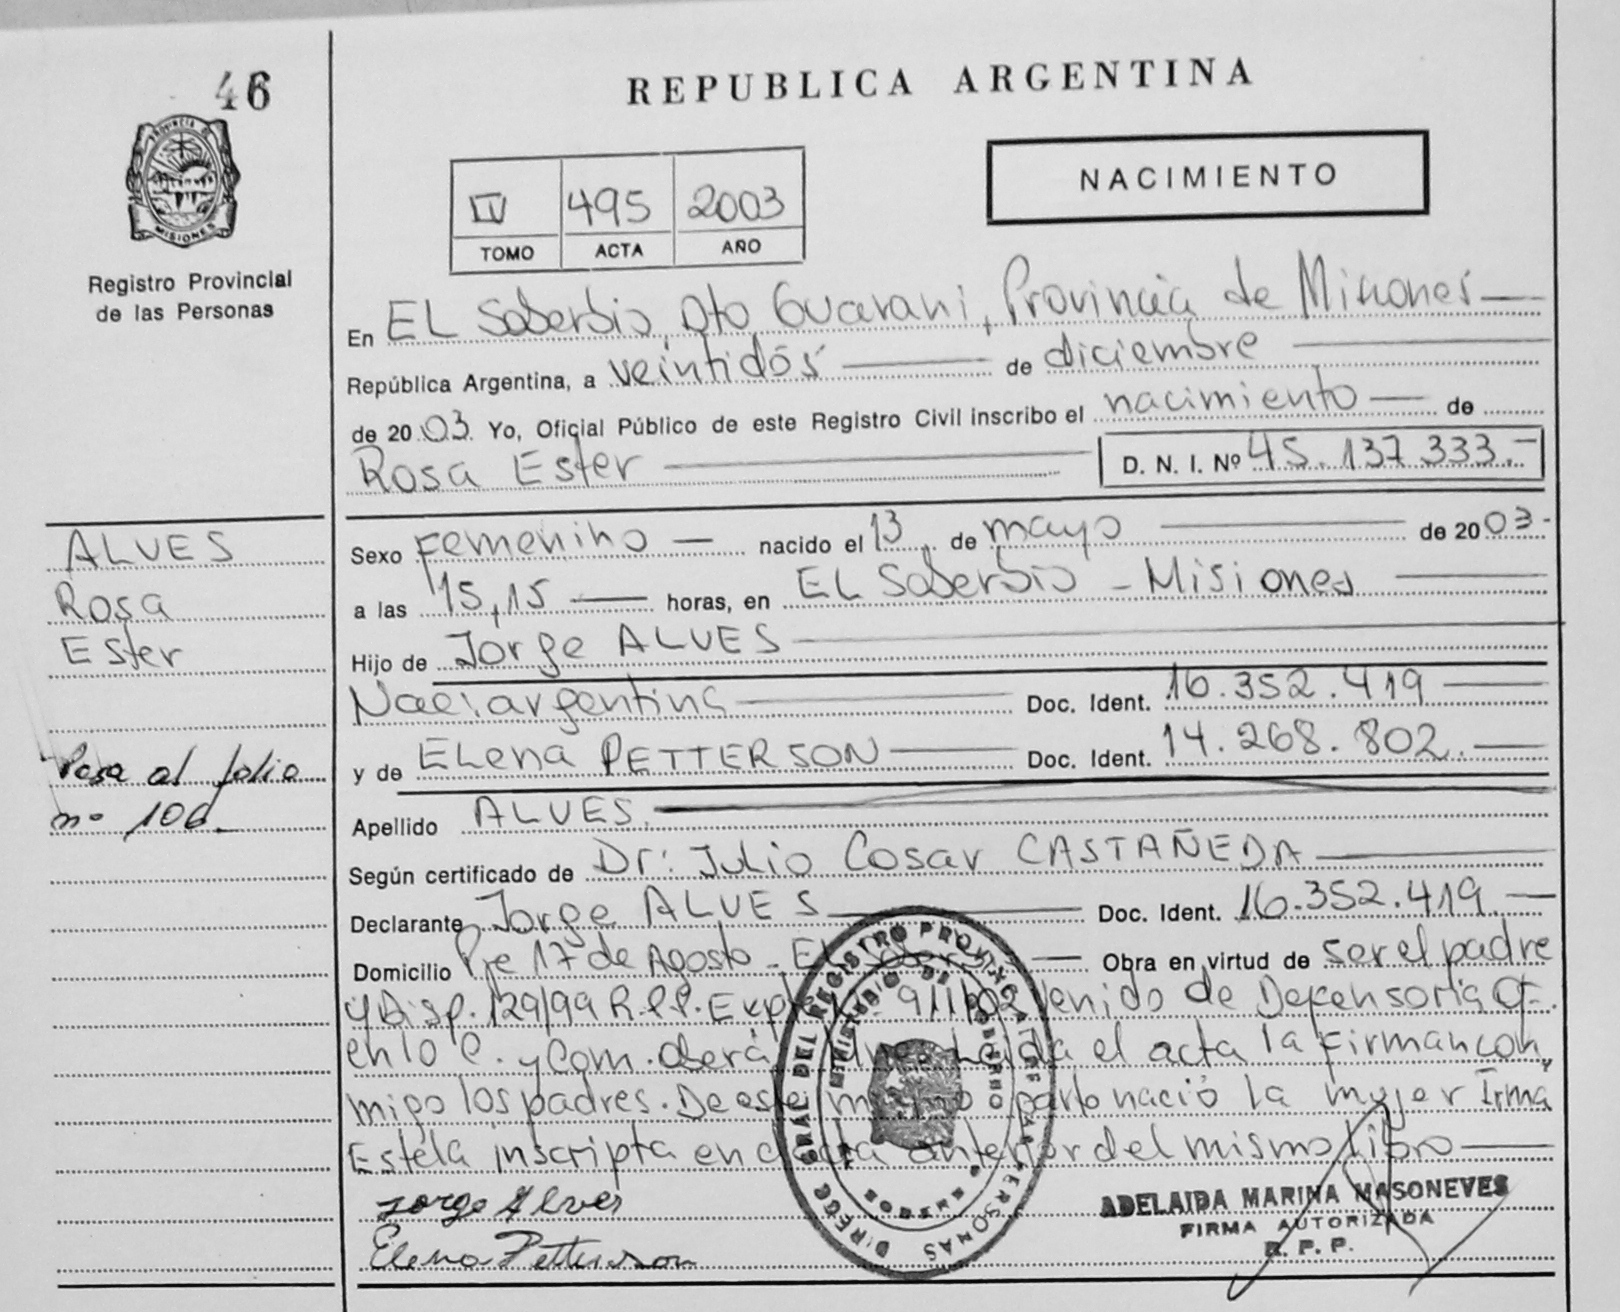 46
REPUBLICA ARGENTINA
PROVINCIA DE
MISIONES
Registro Provincial
de las Personas
IV 495 2003
TOMO ACTA AÑO
NACIMIENTO
En EL Soberbio, Dto Guarani, Provincia de Misiones
República Argentina, a veintidós de diciembre
de 2003. Yo, Oficial Público de este Registro Civil inscribo el nacimiento de
Rosa Ester D. N. I. Nº 45.137.333.-
ALVES
Rosa
Ester
Pasa al folio
nº 100
Sexo Femenino — nacido el 13 de mayo de 2003-
a las 15,15 — horas, en EL Soberbio - Misiones
Hijo de Jorge ALVES
Nac: argentina Doc. Ident. 16.352.419
y de ELena PETTERSON Doc. Ident. 14.268.802.
Apellido ALVES.
Según certificado de Dr: Julio Cosar CASTAÑEDA
Declarante Jorge ALVES Doc. Ident. 16.352.419.
Domicilio Pje 17 de Agosto - EL Soberbio — Obra en virtud de ser el padre
y Disp. 129/99 R.P.P. Expte 911/02 Venido de Defensoria Of.
en lo C. y Com. Oberá Leida el acta la Firman con
migo los padres. De este mismo parto nació la mujer Irma
Estela inscripta en acta anterior del mismo Libro
Jorge Alves
Elena Petterson
DIRECC. GRAL. DEL REGISTRO PROVINCIAL DE LAS PERSONAS
MINISTERIO DE GOBIERNO
ADELAIDA MARINA MASONEVES
FIRMA AUTORIZADA
R. P. P.